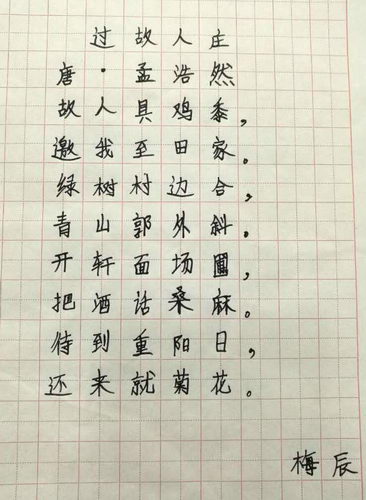 过故人庄
唐·孟浩然
故人具鸡黍，
邀我至田家。
绿树村边合，
青山郭外斜。
开轩面场圃，
把酒话桑麻。
待到重阳日，
还来就菊花。
梅辰